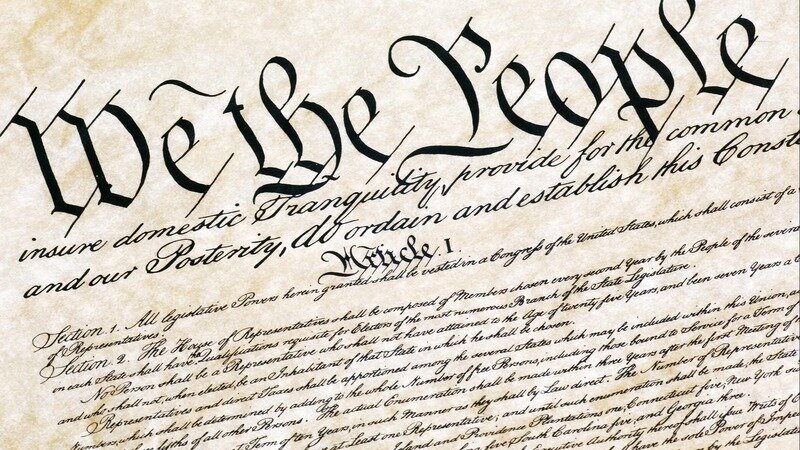 We the People
insure domestic Tranquility, provide for the common
and our Posterity, do ordain and establish this Const
Article. I
Section 1. All legislative Powers herein granted shall be vested in a Congress of the United States, which shall consist of a
of Representatives.
Section 2. The House of Representatives shall be composed of Members chosen every second Year by the People of the several
in each State shall have the Qualifications requisite for Electors of the most numerous Branch of the State Legislature.
No Person shall be a Representative who shall not have attained to the Age of twenty five Years, and been seven Years a
and who shall not, when elected, be an Inhabitant of that State in which he shall be chosen.
Representatives and direct Taxes shall be apportioned among the several States which may be included within this Union, a
Numbers, which shall be determined by adding to the whole Number of free Persons, including those bound to Service for a Term of
fifths of all other Persons. The actual Enumeration shall be made within three Years after the first Meeting of
Term of ten Years, in such Manner as they shall by Law direct. The Number of Representatives
at Least one Representative; and until such enumeration shall be made, the State
Island and Providence Plantations one, Connecticut five, New York six
five, South Carolina five, and Georgia three.
Executive Authority thereof shall issue Writs of
have the sole Power of Impea